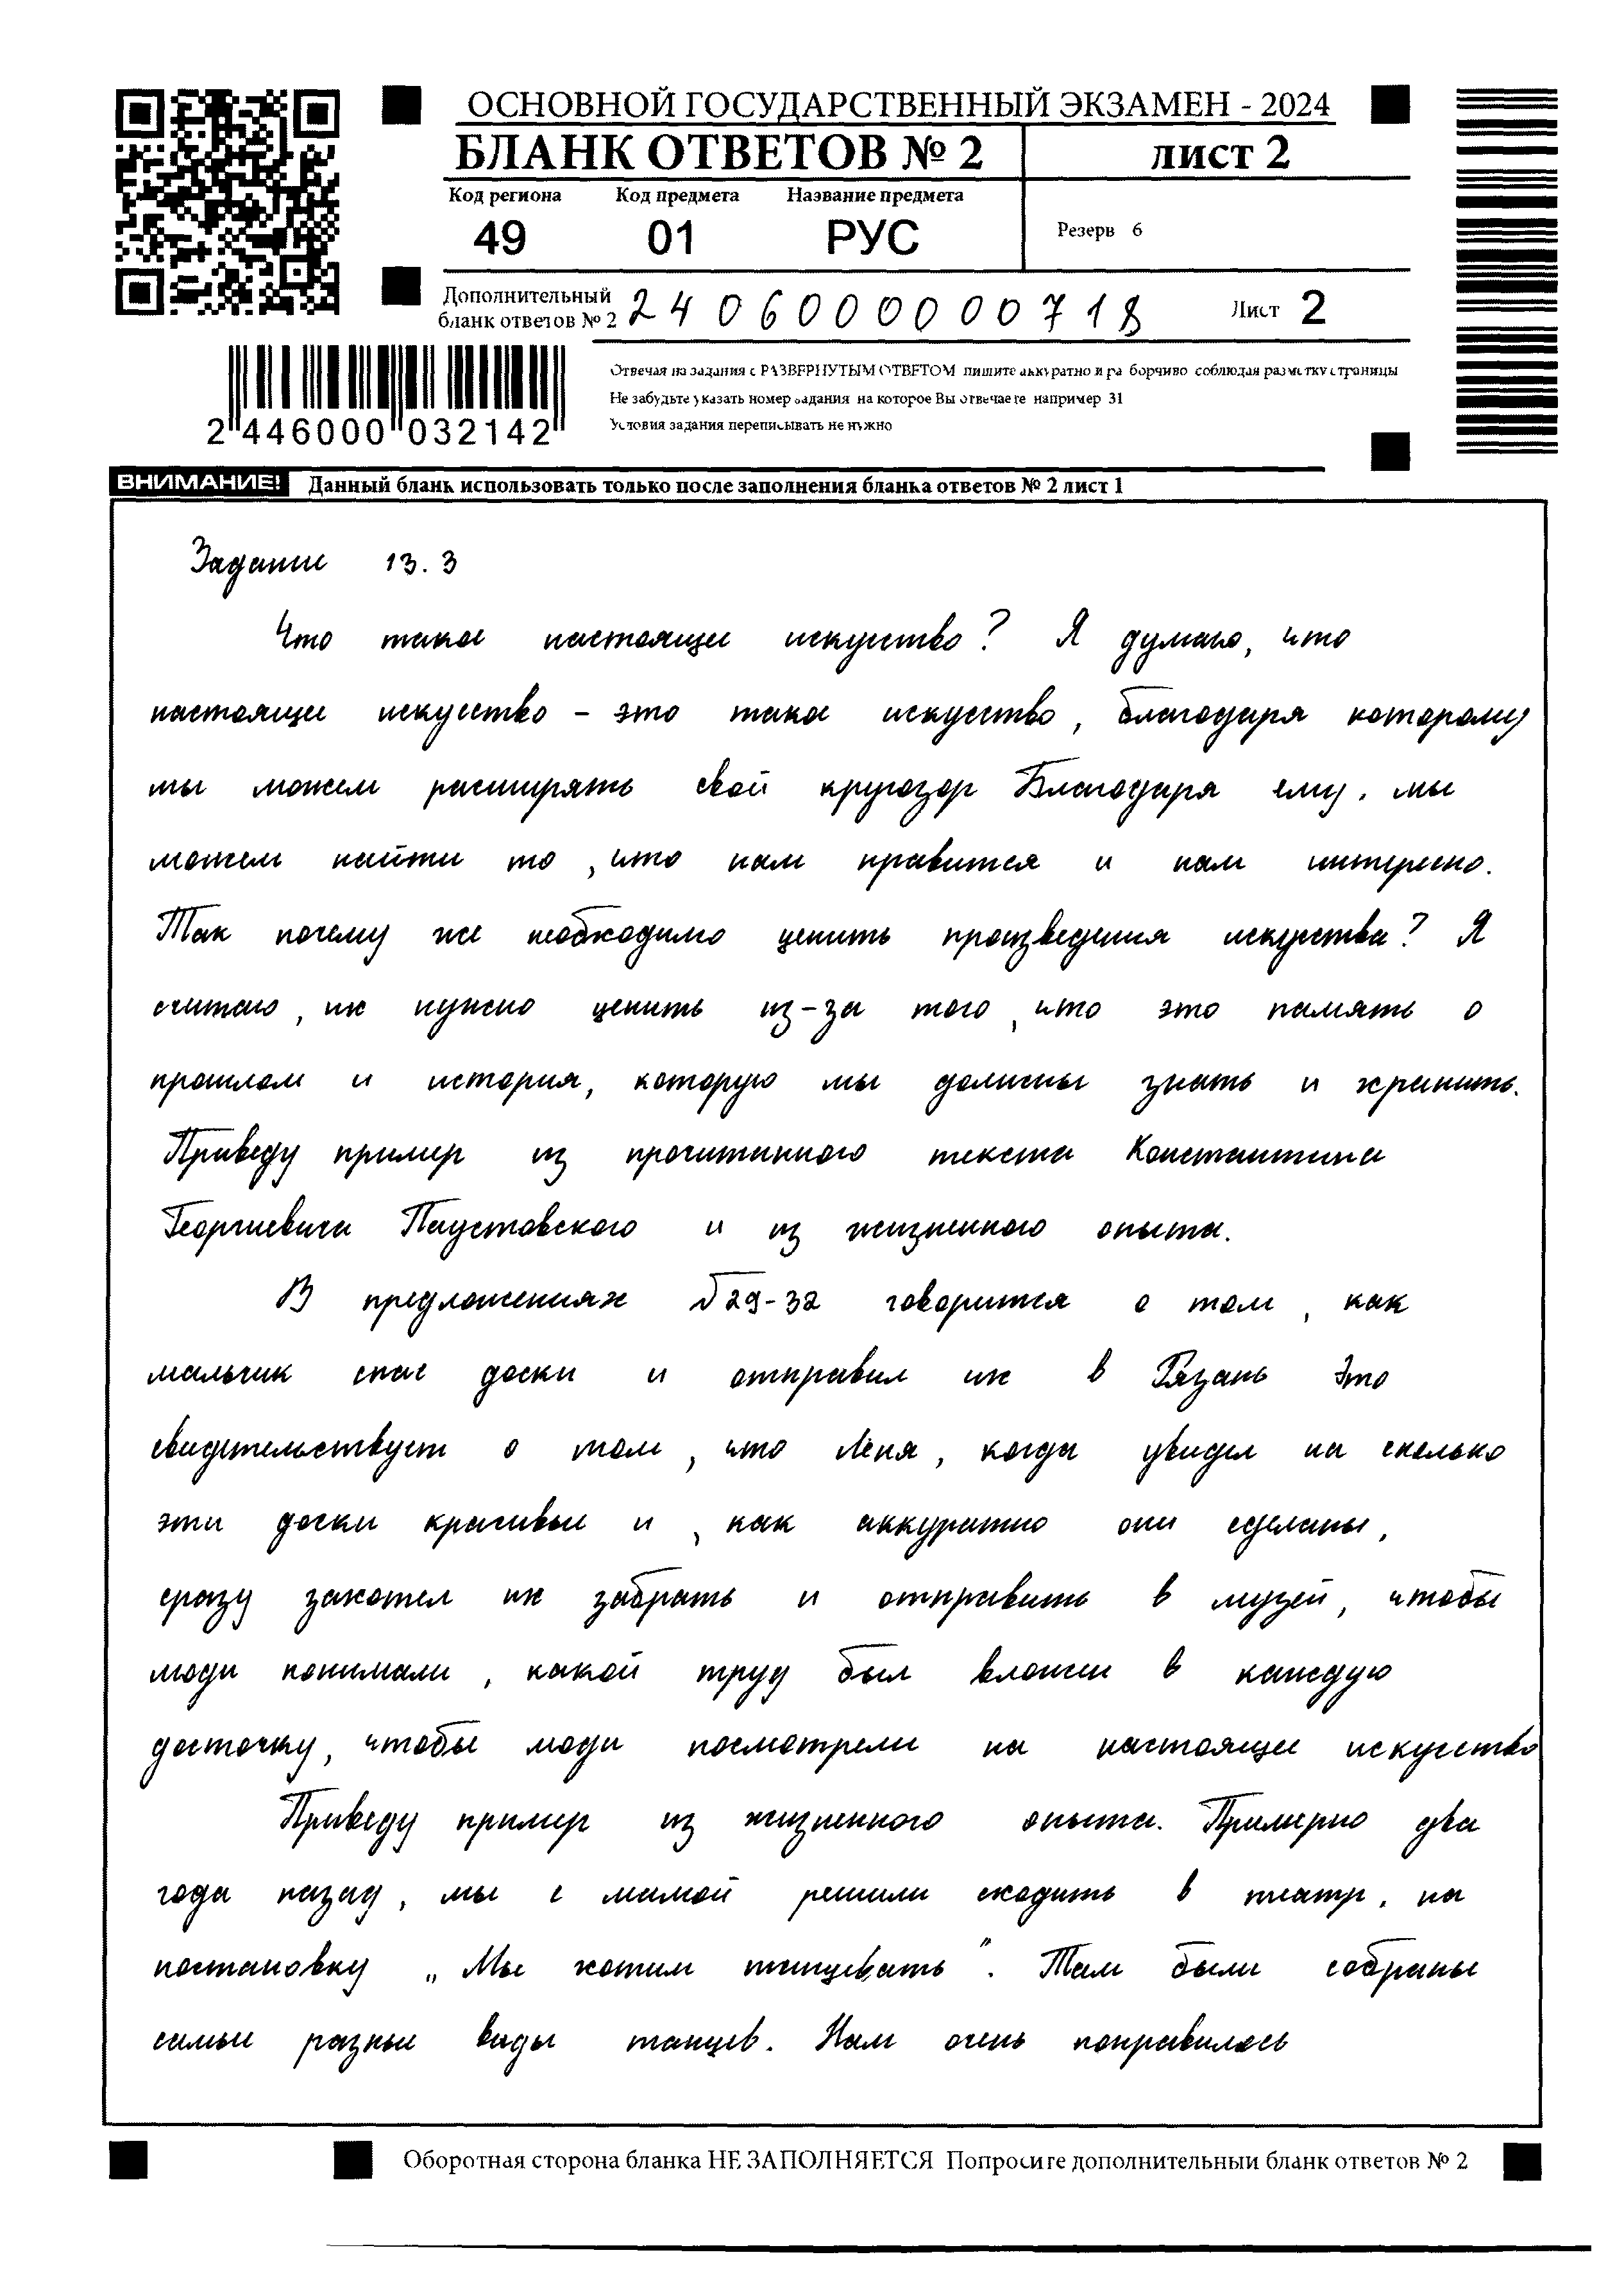 ОСНОВНОЙ ГОСУДАРСТВЕННЫЙ ЭКЗАМЕН - 2024
БЛАНК ОТВЕТОВ № 2
ЛИСТ 2
Код региона Код предмета Название предмета
49 01 РУС
Резерв 6
Дополнительный
бланк ответов № 2 2406000000718
Лист 2
2 446000 032142
Отвечая на задания с РАЗВЕРНУТЫМ ОТВЕТОМ пишите аккуратно и разборчиво соблюдая разметку страницы
Не забудьте указать номер задания на которое Вы отвечаете например 31
Условия задания переписывать не нужно
ВНИМАНИЕ! Данный бланк использовать только после заполнения бланка ответов № 2 лист 1
Задание 13.3
Что такое настоящее искуство? Я думаю, что
настоящее искусство - это такое искусство, благодаря которому
мы можем расширять свой кругозор Благодаря ему, мы
можем найти то, что нам нравится и нам интересно.
Так почему же необходимо ценить произведения искусства? Я
считаю, их нужно ценить из-за того, что это память о
прошлом и история, которую мы должны знать и хранить.
Приведу пример из прочитанного текста Константина
Георгиевича Паустовского и из жизненного опыта.
В предложениях №29-32 говорится о том, как
мальчик спас доски и отправил их в Рязань Это
свидетельствует о том, что Лёня, когда увидел на сколько
эти доски красивые и, как аккуратно они сделаны,
сразу захотел их забрать и отправить в музей, чтобы
люди понимали, какой труд был вложен в каждую
досточку, чтобы люди посмотрели на настоящее искусство
Приведу пример из жизненного опыта. Примерно два
года назад, мы с мамой решили сходить в театр, на
постановку „Мы хотим танцевать". Там были собраны
самые разные виды танцев. Нам очень понравилось
Оборотная сторона бланка НЕ ЗАПОЛНЯЕТСЯ Попросите дополнительный бланк ответов № 2